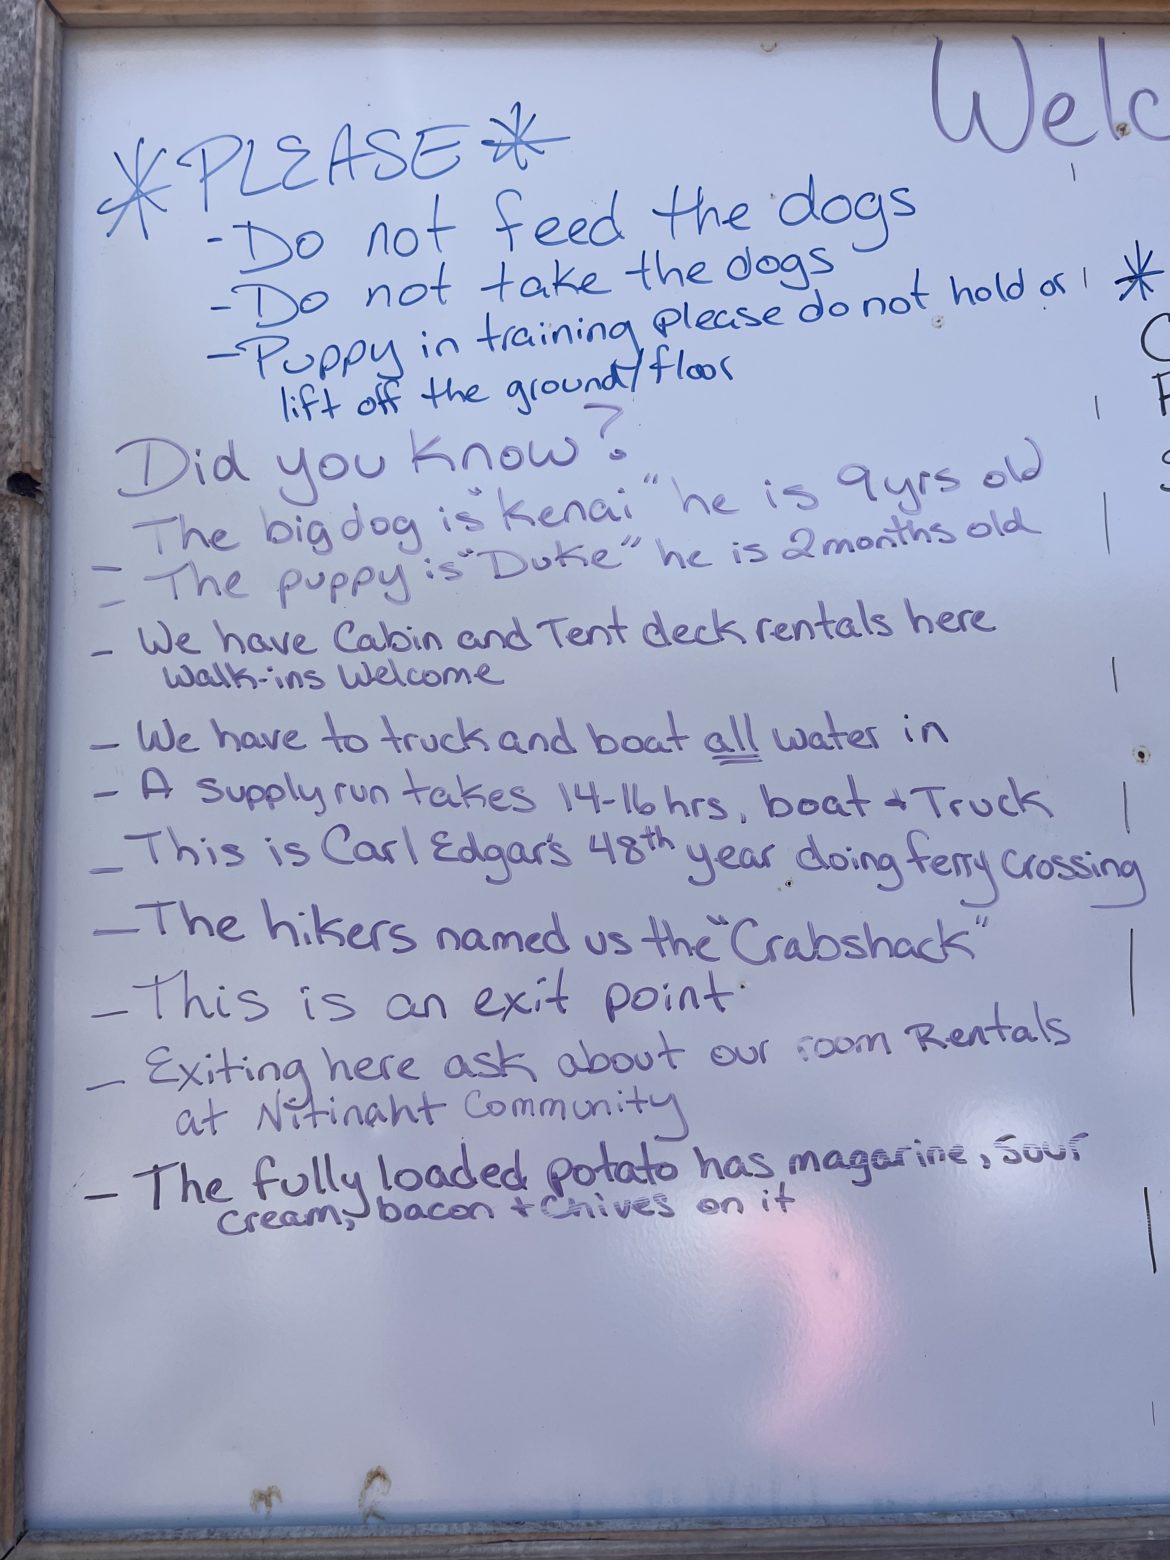 Welc
*PLEASE*
- Do not feed the dogs
- Do not take the dogs
- Puppy in training please do not hold or
lift off the ground/floor
Did you know?
- The big dog is "Kenai" he is 9yrs old
- The puppy is "Duke" he is 2 months old
- We have Cabin and Tent deck rentals here
Walk-ins Welcome
- We have to truck and boat all water in
- A supply run takes 14-16 hrs, boat + Truck
- This is Carl Edgar's 48th year doing ferry crossing
- The hikers named us the "Crabshack"
- This is an exit point
- Exiting here ask about our room Rentals
at Nitinaht Community
- The fully loaded potato has magarine, sour
cream, bacon + chives on it